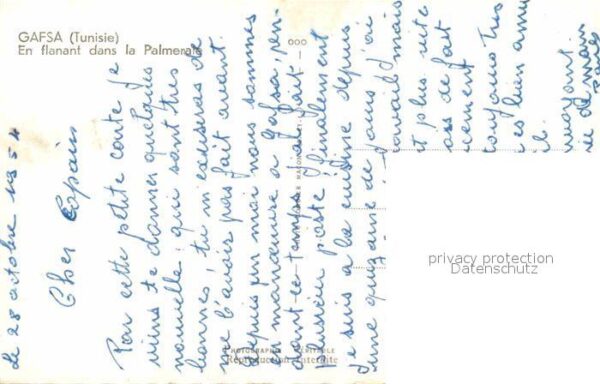 GAFSA (Tunisie)
En flanant dans la Palmeraie
Le 28 octobre 1954
Cher Copain
Par cette petite carte je
viens te donner quelques
nouvelle qui sont très
bonnes, tu m'excusera de
ne l'avoir pas fait avant.
Depuis juin nous sommes
en manœuvre a Gafsa, pen-
dant ce temps j'ai fait
Plusieur poste finalement
je suis a la cuisine depuis
une quinzaine de jours j'ai
travail mais
plus vite
pas de fait
cement
toujours très
bien
Reproduction Interdite
privacy protection
Datenschutz